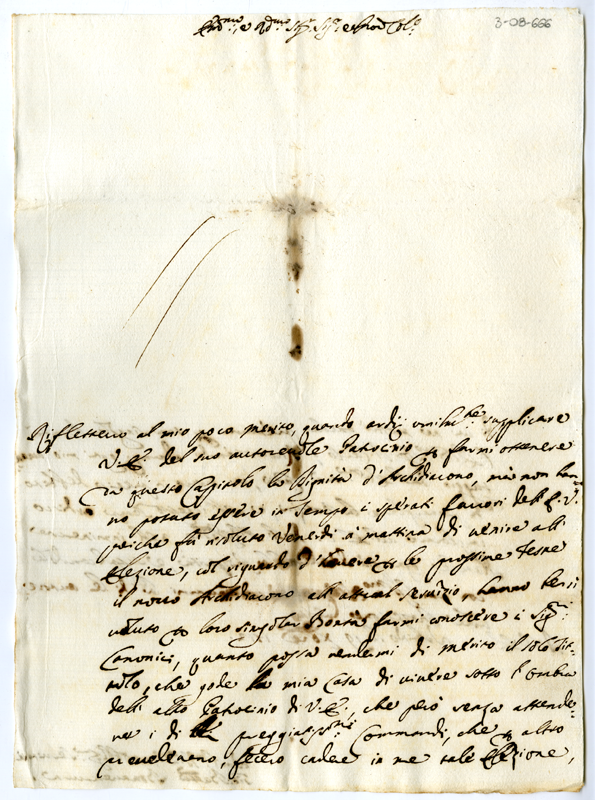 3-08-666
Ill.mo, e R.mo Sig.r Sig.r e Pron Col.o
Riflettevo al mio poco merito, quando ardij umilm.te supplicare
V.E. del suo autorevole Patrocinio per farmi ottenere
in questo Capitolo la Dignità d'Archidiacono, mà non han-
no potuto essere in tempo i sperati favori dell'E.V.
perche fù risoluto Venerdì à mattina di venire all'
Elezione, col riguardo d'havere per le prossime feste
il novo Archidiacono all'attual servizio, hanno bensì
voluto per loro singolar Bontà farmi conoscere i Sig.ri
Canonici, quanto possa rendermi di merito il solo tit-
tolo, che gode la mia Casa di vivere sotto l'ombra
dell'alto Patrocinio di V.E., che però senza attende-
re i di preggiatis.mi Commandi, che per altro
prevedevano, fecero cadere in me tale Elezione,